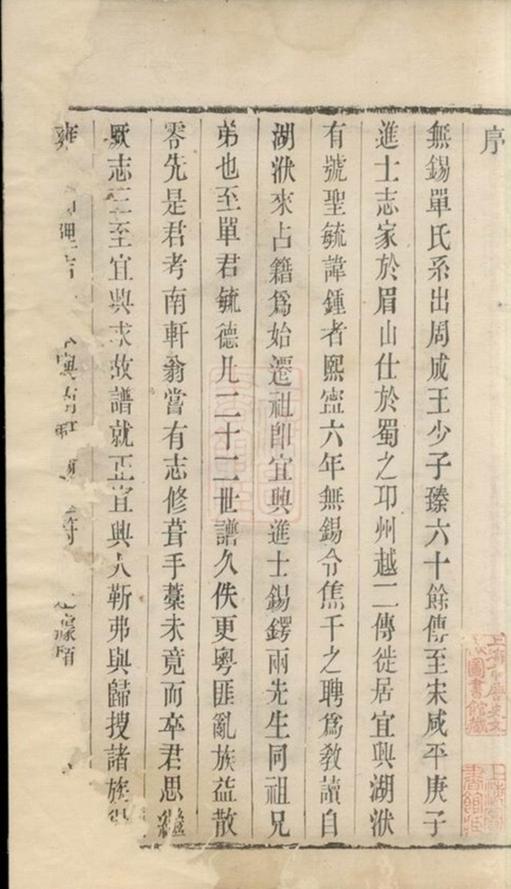 序
無錫單氏系出周成王少子臻六十餘傳至宋咸平庚子
進士志家於眉山仕於蜀之邛州越二傳徙居宜興湖㳇
有號聖毓諱鍾者熙寧六年無錫令焦千之聘為敎讀自
湖㳇來占籍為始遷祖卽宜興進士錫鍔兩先生同祖兄
弟也至單君毓德凡二十二世譜久佚更粵匪亂族益散
零先是君考南軒翁嘗有志修葺手藁未竟而卒君思繼
厥志三至宜興求故譜就正宜興人靳弗與歸搜諸族